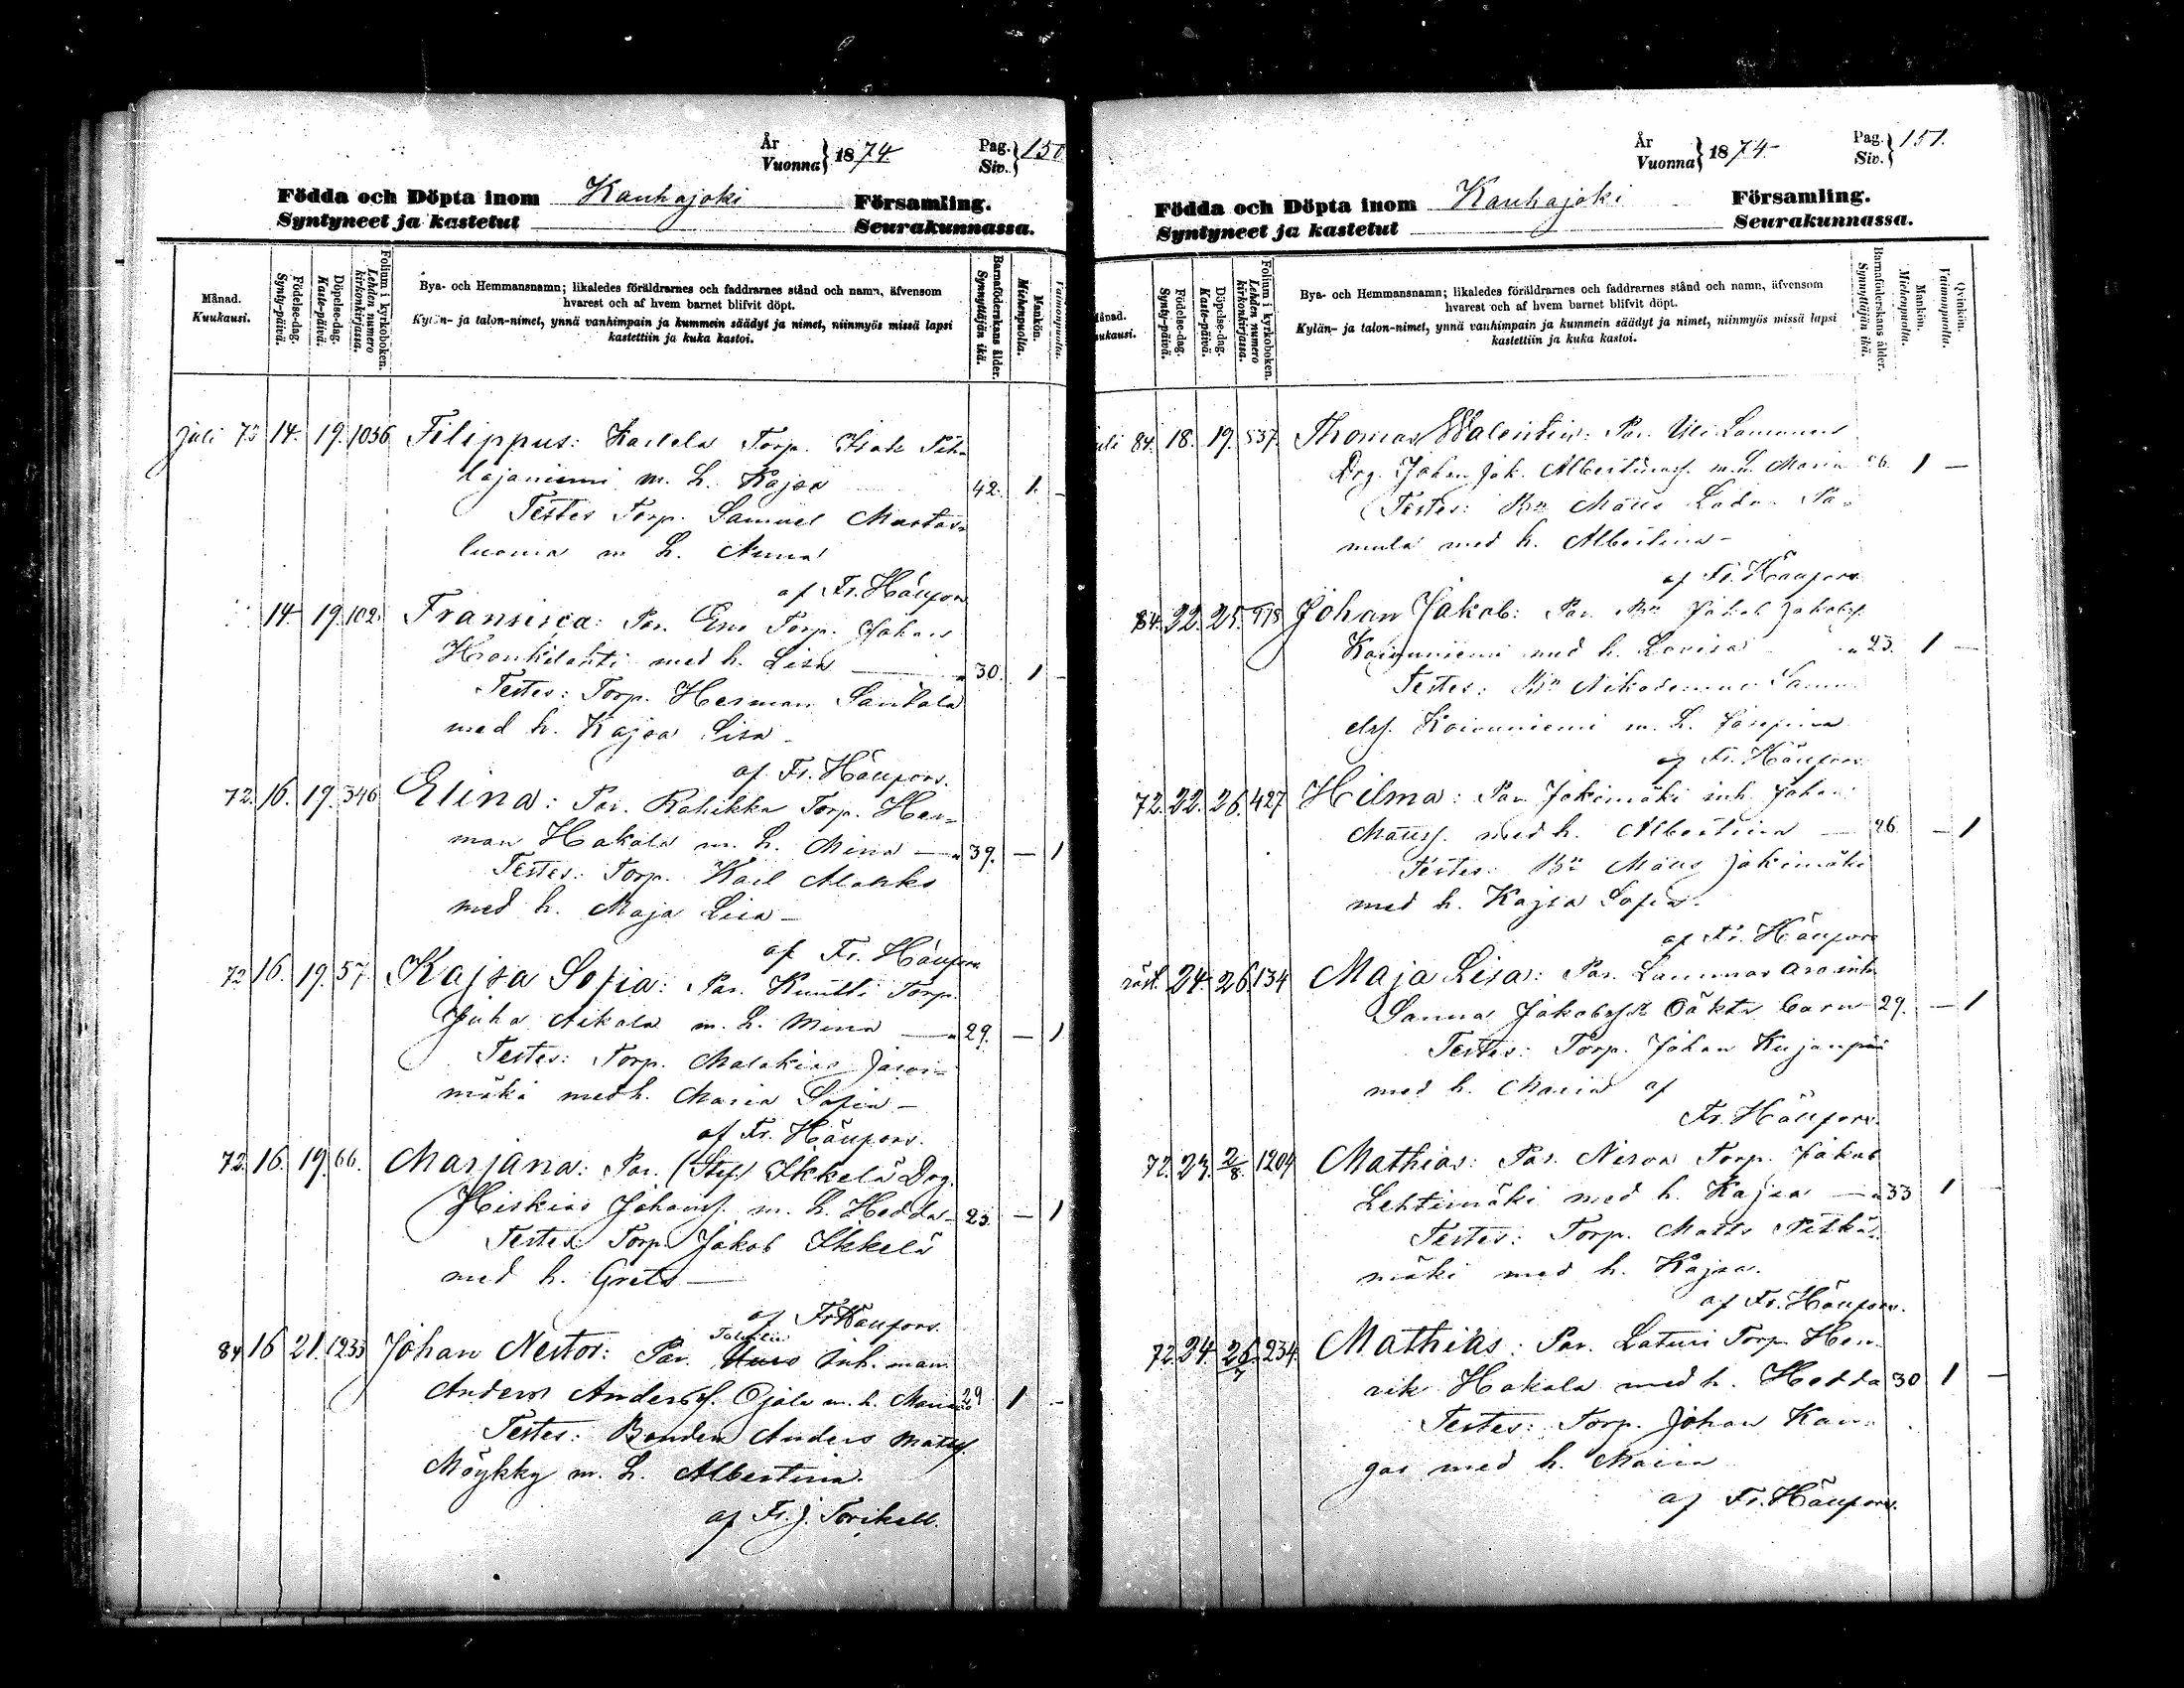 År
Vuonna } 1874.
Pag.
Siv. } 150
Födda och Döpta inom Kauhajoki Församling.
Syntyneet ja kastetut Seurakunnassa.
Månad.
Kuukausi.
Födelse-dag.
Synty-päivä.
Döpelse-dag.
Kaste-päivä.
Folium i kyrkoboken.
Lehden numero kirkonkirjassa.
Bya- och Hemmansnamn; likaledes föräldrarnes och faddrarnes stånd och namn, äfvensom
hvarest och af hvem barnet blifvit döpt.
Kylän- ja talon-nimet, ynnä vanhimpain ja kummein säädyt ja nimet, niinmyös missä lapsi
kastettiin ja kuka kastoi.
Barnaföderskans ålder.
Synnyttäjän ikä.
Mankön.
Miehenpuolta.
Vaimonpuolta.
Juli 73 14. 19. 1056 Filippus: Karlela Torp. Isak Pih-
lajaniemi m. h. Kajsa 42. 1. -
Testes Torp. Samuel Mustas-
luoma m h. Anna
af Fr. Häupors
14. 19. 102 Fransisca: Par. Eno Torp. Johan
Honkilahti med h. Lisa 30. 1 -
Testes: Torp. Herman Santala
med h. Kajsa Lisa -
af Fr. Häupors.
72. 16. 19. 346 Elina: Par. Rahikka Torp. Her-
man Hakala m. h. Mina 39. - 1
Testes: Torp. Karl
med h. Maja Lisa -
af Fr. Häupors
72 16. 19. 57. Kajsa Sofia: Par. Knutti Torp.
Juha Nikola m. h. Mina 29. - 1
Testes: Torp. Malakias
mäki med h. Maria Sofia -
af Fr. Häupors.
72. 16. 19. 66. Marjana: Par. (Stef) Ikkelä Drg.
Hiskias Johanss. m. h. Hedda 25. - 1
Testes: Torp. Jakob Ikkelä
med h. Greta -
af Fr Häupors.
84 16 21. 1233 Johan Nestor: Par. Inh. man
Anders Anderss. Ojala m. h. Maria 29 1 -
Testes: Bonden Anders Matts.
Möykky m. h. Albertina.
af Fr. J. Forsell.
År
Vuonna } 1874.
Pag.
Siv. } 151.
Födda och Döpta inom Kauhajoki Församling.
Syntyneet ja kastetut Seurakunnassa.
Månad.
Kuukausi.
Födelse-dag.
Synty-päivä.
Döpelse-dag.
Kaste-päivä.
Folium i kyrkoboken.
Lehden numero kirkonkirjassa.
Bya- och Hemmansnamn; likaledes föräldrarnes och faddrarnes stånd och namn, äfvensom
hvarest och af hvem barnet blifvit döpt.
Kylän- ja talon-nimet, ynnä vanhimpain ja kummein säädyt ja nimet, niinmyös missä lapsi
kastettiin ja kuka kastoi.
Barnaföderskans ålder.
Synnyttäjän ikä.
Mankön.
Miehenpuolta.
Qvinkön.
Vaimonpuolta.
84. 18. 19. 537. Thomas Walentin: Par. Lammas
Drg. Johan Jak. m. h. Maria 26. 1 -
Testes: Bn Matts
med h. Albertina -
af Fr. Häupors
84. 22. 25. Johan Jakob: Par. Bn Jakob Jakobs.
Koivuniemi med h. Lovisa 23. 1 -
Testes: Bn Nikodemus Samu
elss. Koivuniemi m. h. Josepina
af Fr. Häupors
72. 22. 26. 427 Hilma: Par. Jokimäki inh. Johan
Matts. med h. Albertina 26. - 1
Testes: Bn Matts Jokimäki
med h. Kajsa Sofia.
af Fr. Häupors
24. 26. 134 Maja Lisa: Par. Lammas
Sanna Jakobsd. Oäkta barn 29. - 1
Testes: Torp. Johan Kujanpää
med h. Maria af
Fr. Häupors.
72. 24. 2/8. 1204 Mathias: Par. Nirva Torp. Jakob
Lehtimäki med h. Kajsa 33 1 -
Testes: Torp. Matts Pitkä-
mäki med h. Kajsa.
af Fr. Häupors.
72. 24. 26/7 234. Mathias: Par. Laturi Torp. Hen-
rik Hakala med h. Hedda 30 1 -
Testes: Torp. Johan Kan-
gas med h. Maria
af Fr. Häupors.